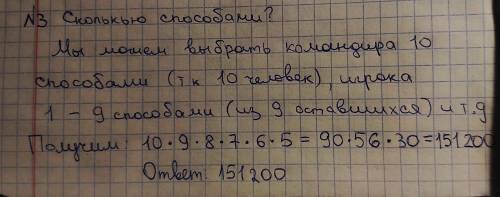 №3 Сколькью способами?
Мы можем выбрать командира 10
способами (т к 10 человек), игрока
1 - 9 способами (из 9 оставшихся) и т.д
Получим: 10·9·8·7·6·5 = 90·56·30=151200
Ответ: 151200